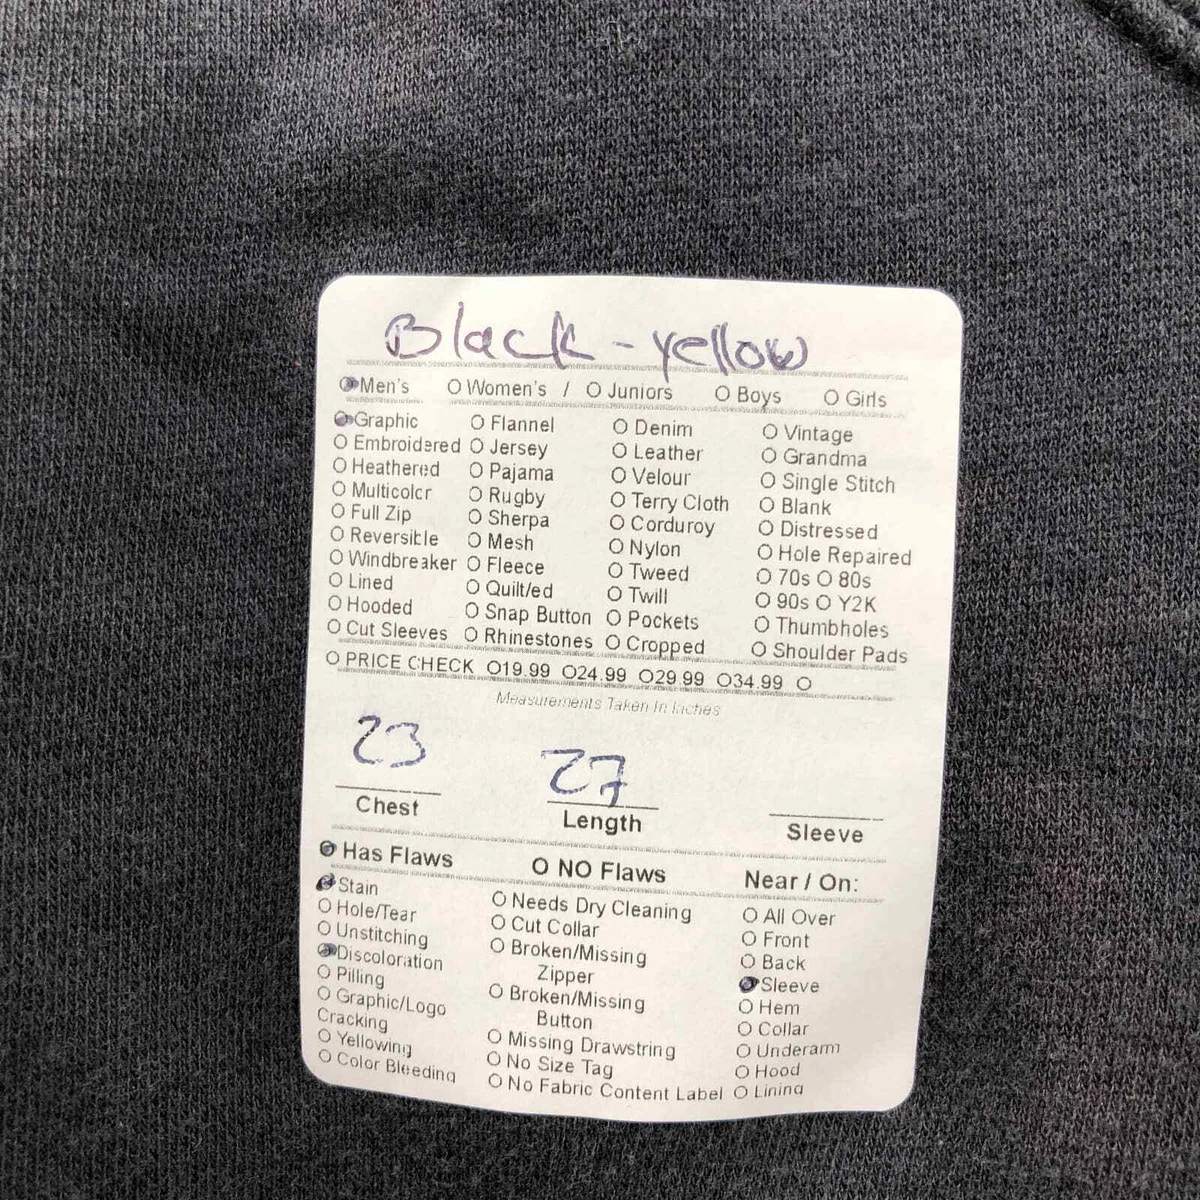 Black - yellow
Men's O Women's / O Juniors O Boys O Girls
Graphic O Flannel O Denim O Vintage
O Embroidered O Jersey O Leather O Grandma
O Heathered O Pajama O Velour O Single Stitch
O Multicolor O Rugby O Terry Cloth O Blank
O Full Zip O Sherpa O Corduroy O Distressed
O Reversible O Mesh O Nylon O Hole Repaired
O Windbreaker O Fleece O Tweed O 70s O 80s
O Lined O Quilt/ed O Twill O 90s O Y2K
O Hooded O Snap Button O Pockets O Thumbholes
O Cut Sleeves O Rhinestones O Cropped O Shoulder Pads
O PRICE CHECK O19.99 O24.99 O29.99 O34.99 O
Measurements Taken In Inches
23 27
Chest Length Sleeve
Has Flaws O NO Flaws Near / On:
Stain O Needs Dry Cleaning O All Over
O Hole/Tear O Cut Collar O Front
O Unstitching O Broken/Missing O Back
Discoloration Zipper Sleeve
O Pilling O Broken/Missing O Hem
O Graphic/Logo Button O Collar
Cracking O Missing Drawstring O Underarm
O Yellowing O No Size Tag O Hood
O Color Bleeding O No Fabric Content Label O Lining